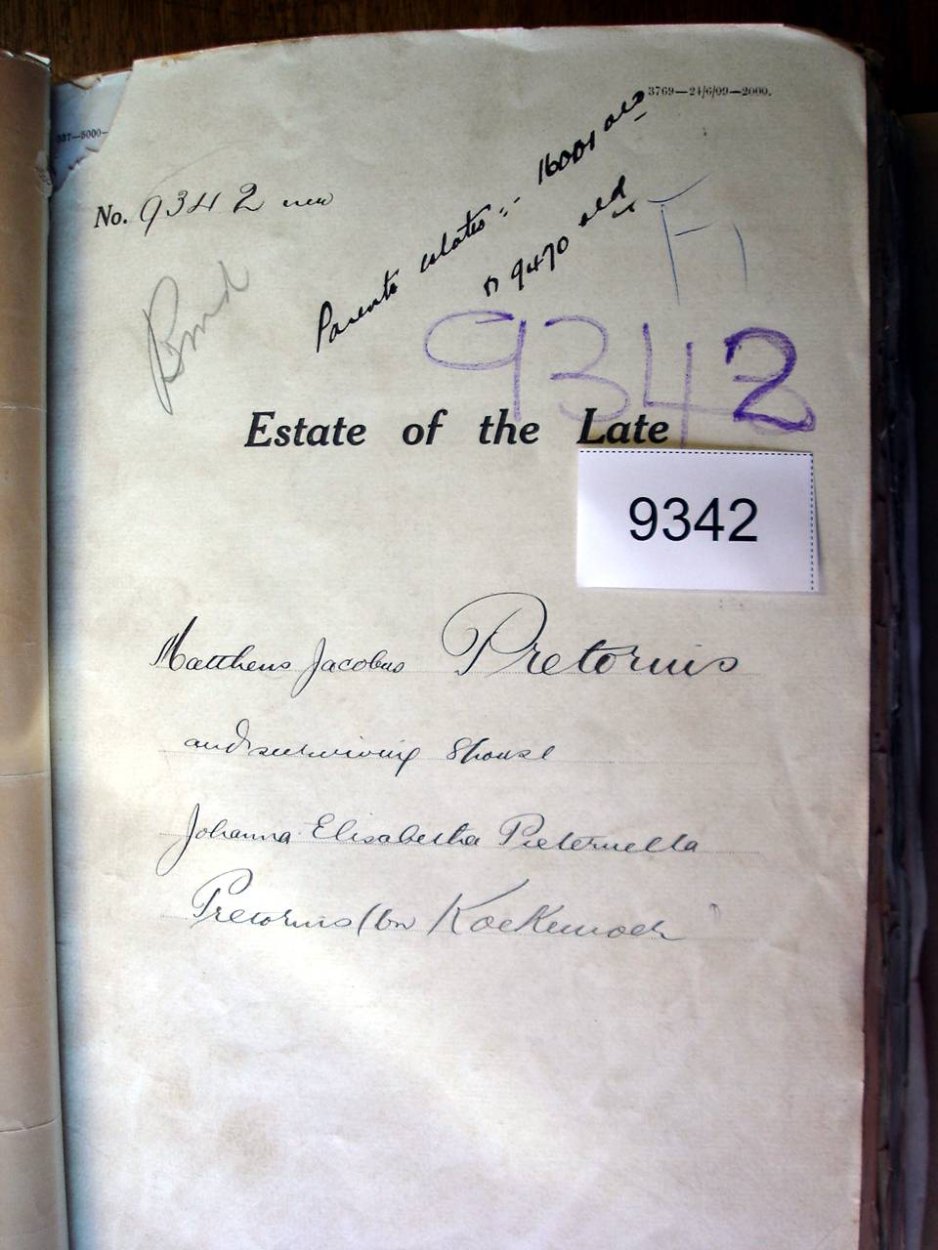 3769—24/6/09—2000.
337—5000—
No. 9342 new
Parents estates :- 16001 old
" 9470 old
9342
Estate of the Late
9342
Matthens Jacobus Pretorius
and surviving Spouse
Johanna Elisabetha Pieternella
Pretorius (bn Koekemoer